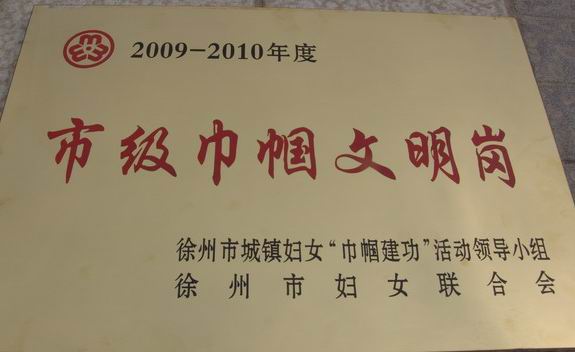 2009-2010年度
市级巾帼文明岗
徐州市城镇妇女“巾帼建功”活动领导小组
徐州市妇女联合会